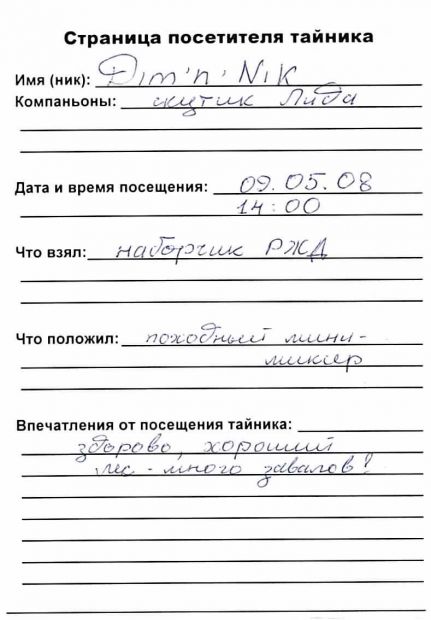 Страница посетителя тайника
Имя (ник): Dim'n'Nik
Компаньоны: скутик Лида
Дата и время посещения: 09.05.08
14:00
Что взял: наборчик РЖД
Что положил: походный мини-
миксер
Впечатления от посещения тайника:
здорово, хороший
лес - много завалов!